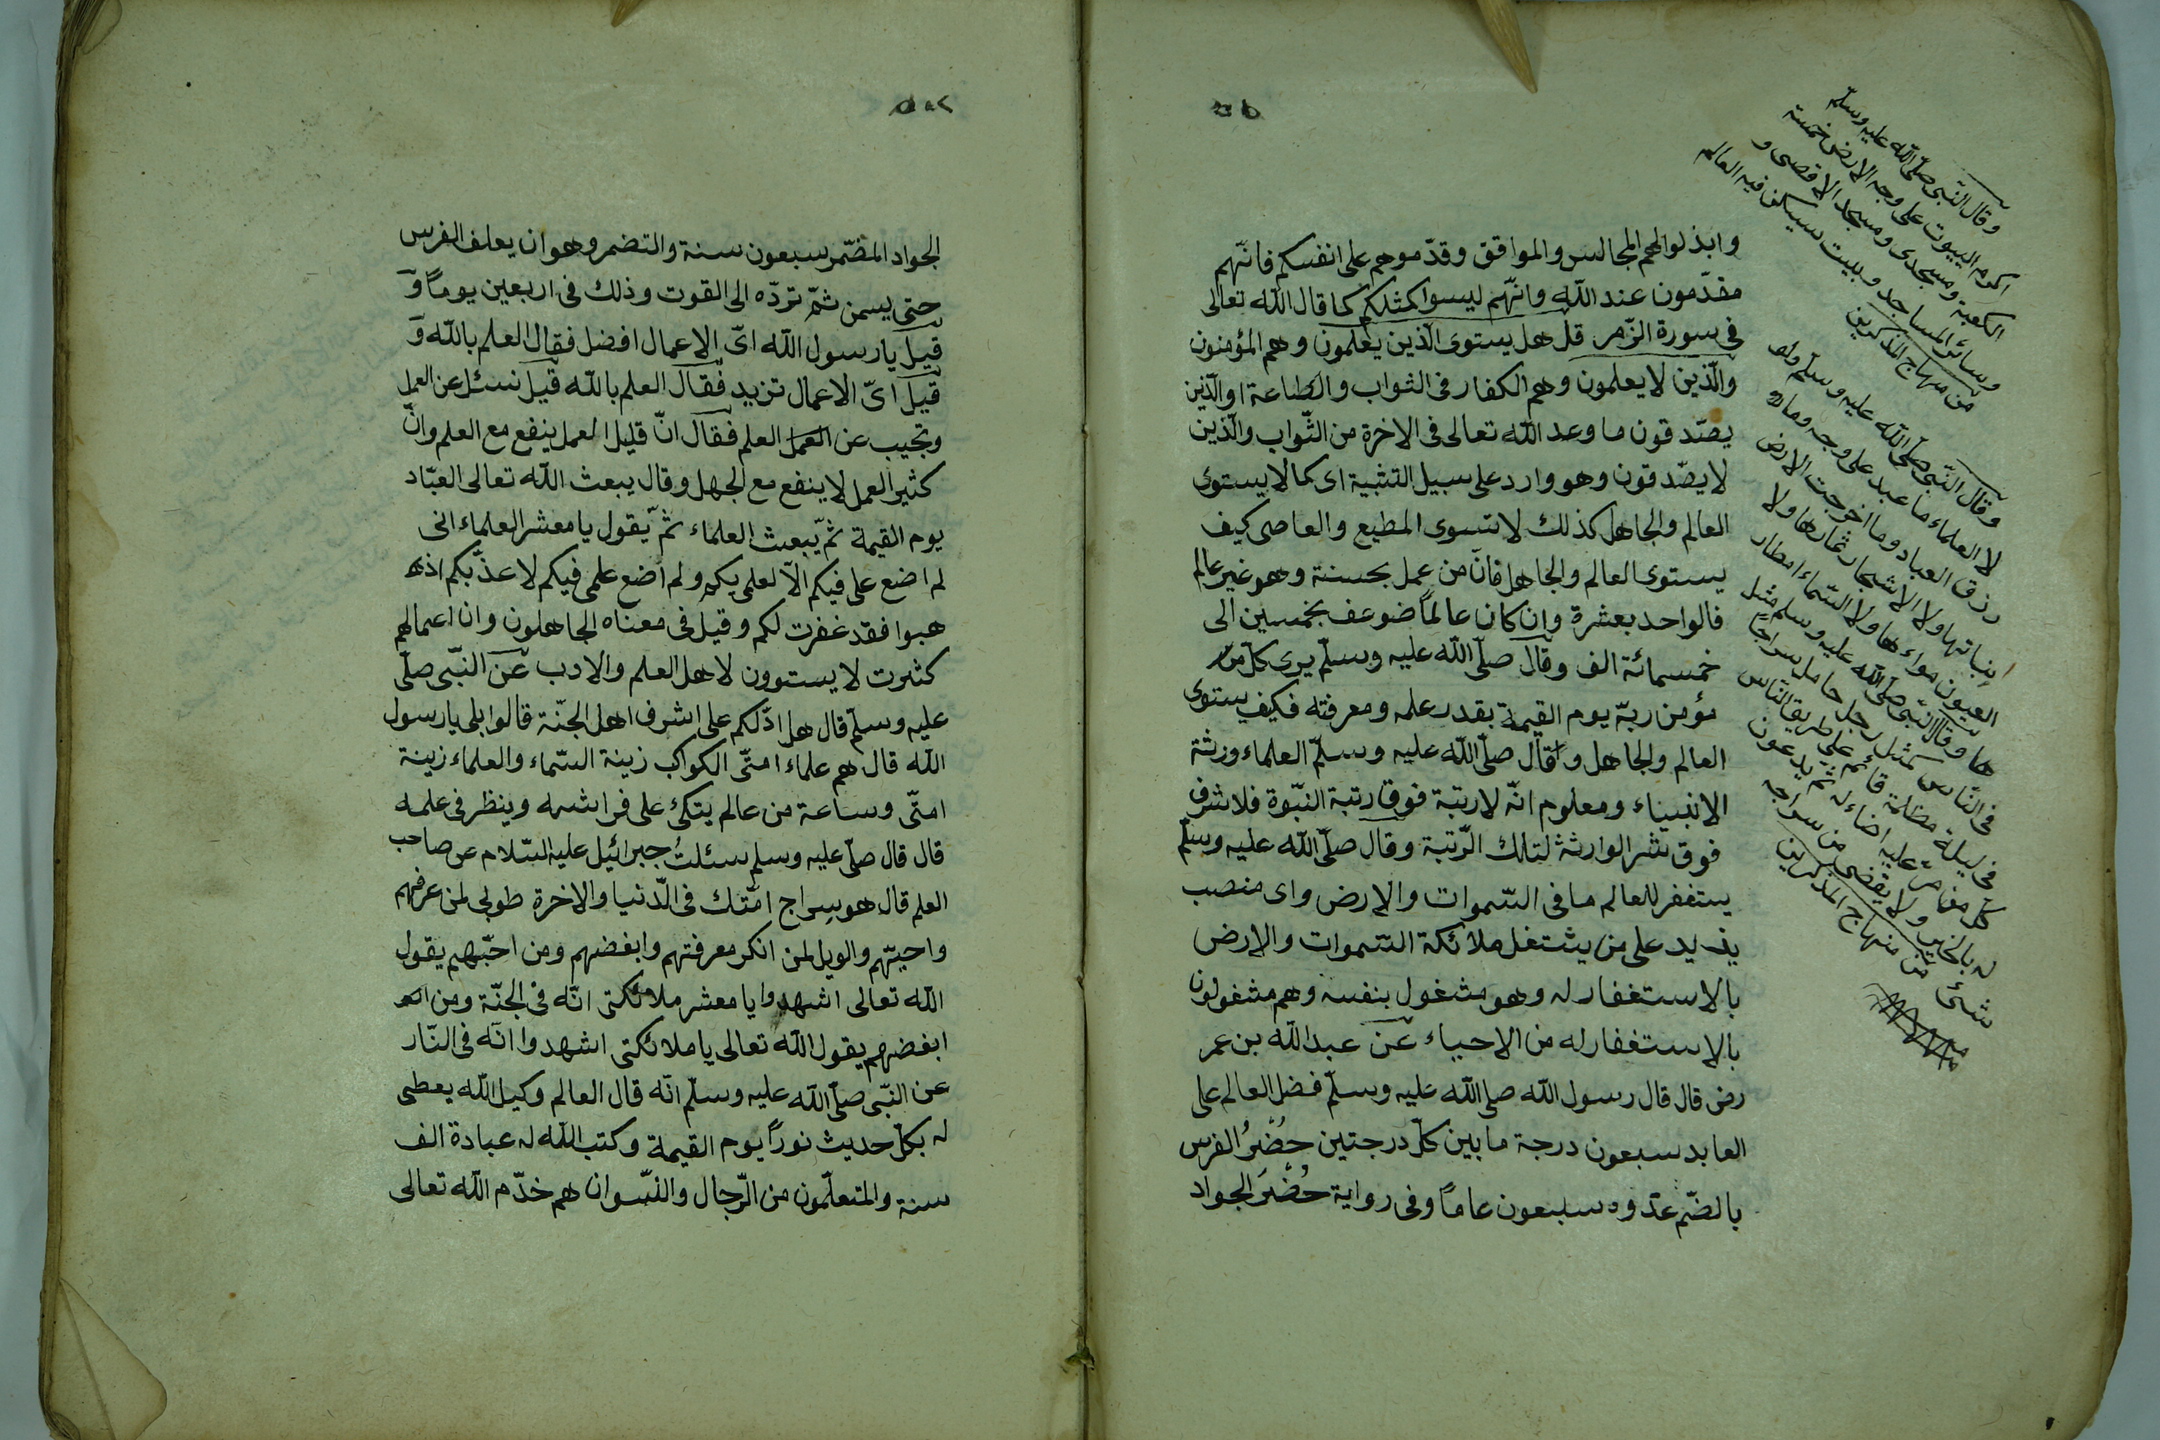 وابذلوا لهم المجالس والموافق وقدّموهم على انفسكم فانّهم
مقدّمون عند اللّه وانّهم ليسوا كمثلكم كما قال اللّه تعالى
فى سورة الزّمر قل هل يستوى الّذين يعلمون وهم المؤمنون
والّذين لا يعلمون وهم الكفار فى الثواب والطاعة او الّذين
يصدّقون ما وعد اللّه تعالى فى الاخرة من الثّواب والّذين
لا يصدّقون وهو وارد على سبيل التشبية اى كما لا يستوى
العالم والجاهل كذلك لا تسوى المطيع والعاصى كيف
يستوى العالم والجاهل فانّ من عمل بحسنة وهو غير عالم
فالواحد بعشرة وان كان عالماً ضوعف بخمسين الى
خمسمائة الف وقال صلّى اللّه عليه وسلّم يرى كلّ مؤ
مؤمن ربّه يوم القيمة بقدر علمه ومعرفته فكيف يستوى
العالم والجاهل وقال صلّى اللّه عليه وسلّم العلماء ورثة
الانبياء ومعلوم انّه لا رتبة فوق رتبة النبّوة فلا شرف
فوق شر الوارثة لتلك الرّتبة وقال صلّى اللّه عليه وسلّم
يستغفر للعالم ما فى السّموات والارض واى منصب
يزيد على من يشتغل ملائكة السّموات والارض
بالاستغفار له وهو مشغول بنفسه وهم مشغولون
بالاستغفار له من الاحياء عن عبد اللّه بن عمر
رض قال قال رسول اللّه صلى اللّه عليه وسلّم فضل العالم على
العابد سبعون درجة ما بين كلّ درجتين حُضْرُ الفرس
بالضّم عدوه سبعون عاماً وفى رواية حُضْرَ الجواد
وقال النّبى صلّى اللّه عليه وسلّم
اكرم البيوت على وجه الارض خمسة
الكعبة ومسجدى ومسجد الاقصى و
وسائر المساجد وبيت سيكن فيه العالم
من منهاج المذكرين
وقال النّبى صلّى اللّه عليه وسلّم ولو
لا العلماء ما عبد على وجه وما
رزق العباد وما اخرجت الارض
نباتها ولا الاشجار ثمارها ولا
العيون مواءها ولا السّماء امطار
ها وقال النّبى صلّى اللّه عليه وسلم مثل
فى النّاس كمثل رجل حامل سراجاً
فى ليلة مظلمة قائم على طريق النّاس
كلّ من مرّ عليه اضاء له ثم يدعون
له بالخير ولا ينقض من سراجه
شئ من منهاج المذكرين
الجواد المضّمر سبعون سنة والتضمر وهو ان يعلف الفرس
حتى يسمن ثمّ تردّه الى القوت وذلك فى اربعين يوماً وَ
قيل يا رسول اللّه اىّ الاعمال افضل فقال العلم باللّه وَ
قيل اىّ الاعمال تزيد فقال العلم باللّه قيل نسئل عن العمل
وتجيب عن العمل العلم فقال انّ قليل العمل ينفع مع العلم وانّ
كثير العمل لا ينفع مع الجهل وقال يبعث اللّه تعالى العبّاد
يوم القيمة ثمّ يبعث العلماء ثمّ يقول يا معشر العلماء انى
لم اضع على فيكم الّا لعلمى بكم ولم اضع علمى فيكم لا عذّبكم اذ
هبوا فقد غفرت لكم وقيل فى معناه الجاهلون وان اعمالهم
كثرت لا يستوون لاهل العلم والادب عن النّبى صلّى
عليه وسلّم قال هل ادّلكم على اشرف اهل الجنّة قالوا بلى يا رسول
اللّه قال هم علماء امتّى الكواكب زينة السّماء والعلماء زينة
امتّى وساعة من عالم يتكئ على فراشه وينظر فى علمه
قال قال صلّى عليه وسلم سئلتُ جبرائيل عليه السّلام عن صاحب
العلم قال هو سراج امّتك فى الدّنيا والاخرة طوبى لمن عرفهم
واحبّهم والويل لمن انكر معرفتهم وابغضهم ومن احبّهم يقول
اللّه تعالى اشهدوا يا معشر ملائكتى انّه فى الجنّة ومن
ابغضهم يقول اللّه تعالى يا ملائكتى اشهدوا انّه فى النّار
عن النّبى صلّى اللّه عليه وسلّم انّه قال العالم وكيل اللّه يعطى
له بكلّ حديث نوراً يوم القيمة وكتب اللّه له عبادة الف
سنة والمتعلّمون من الرّجال والنّسوان هم خدّم اللّه تعالى